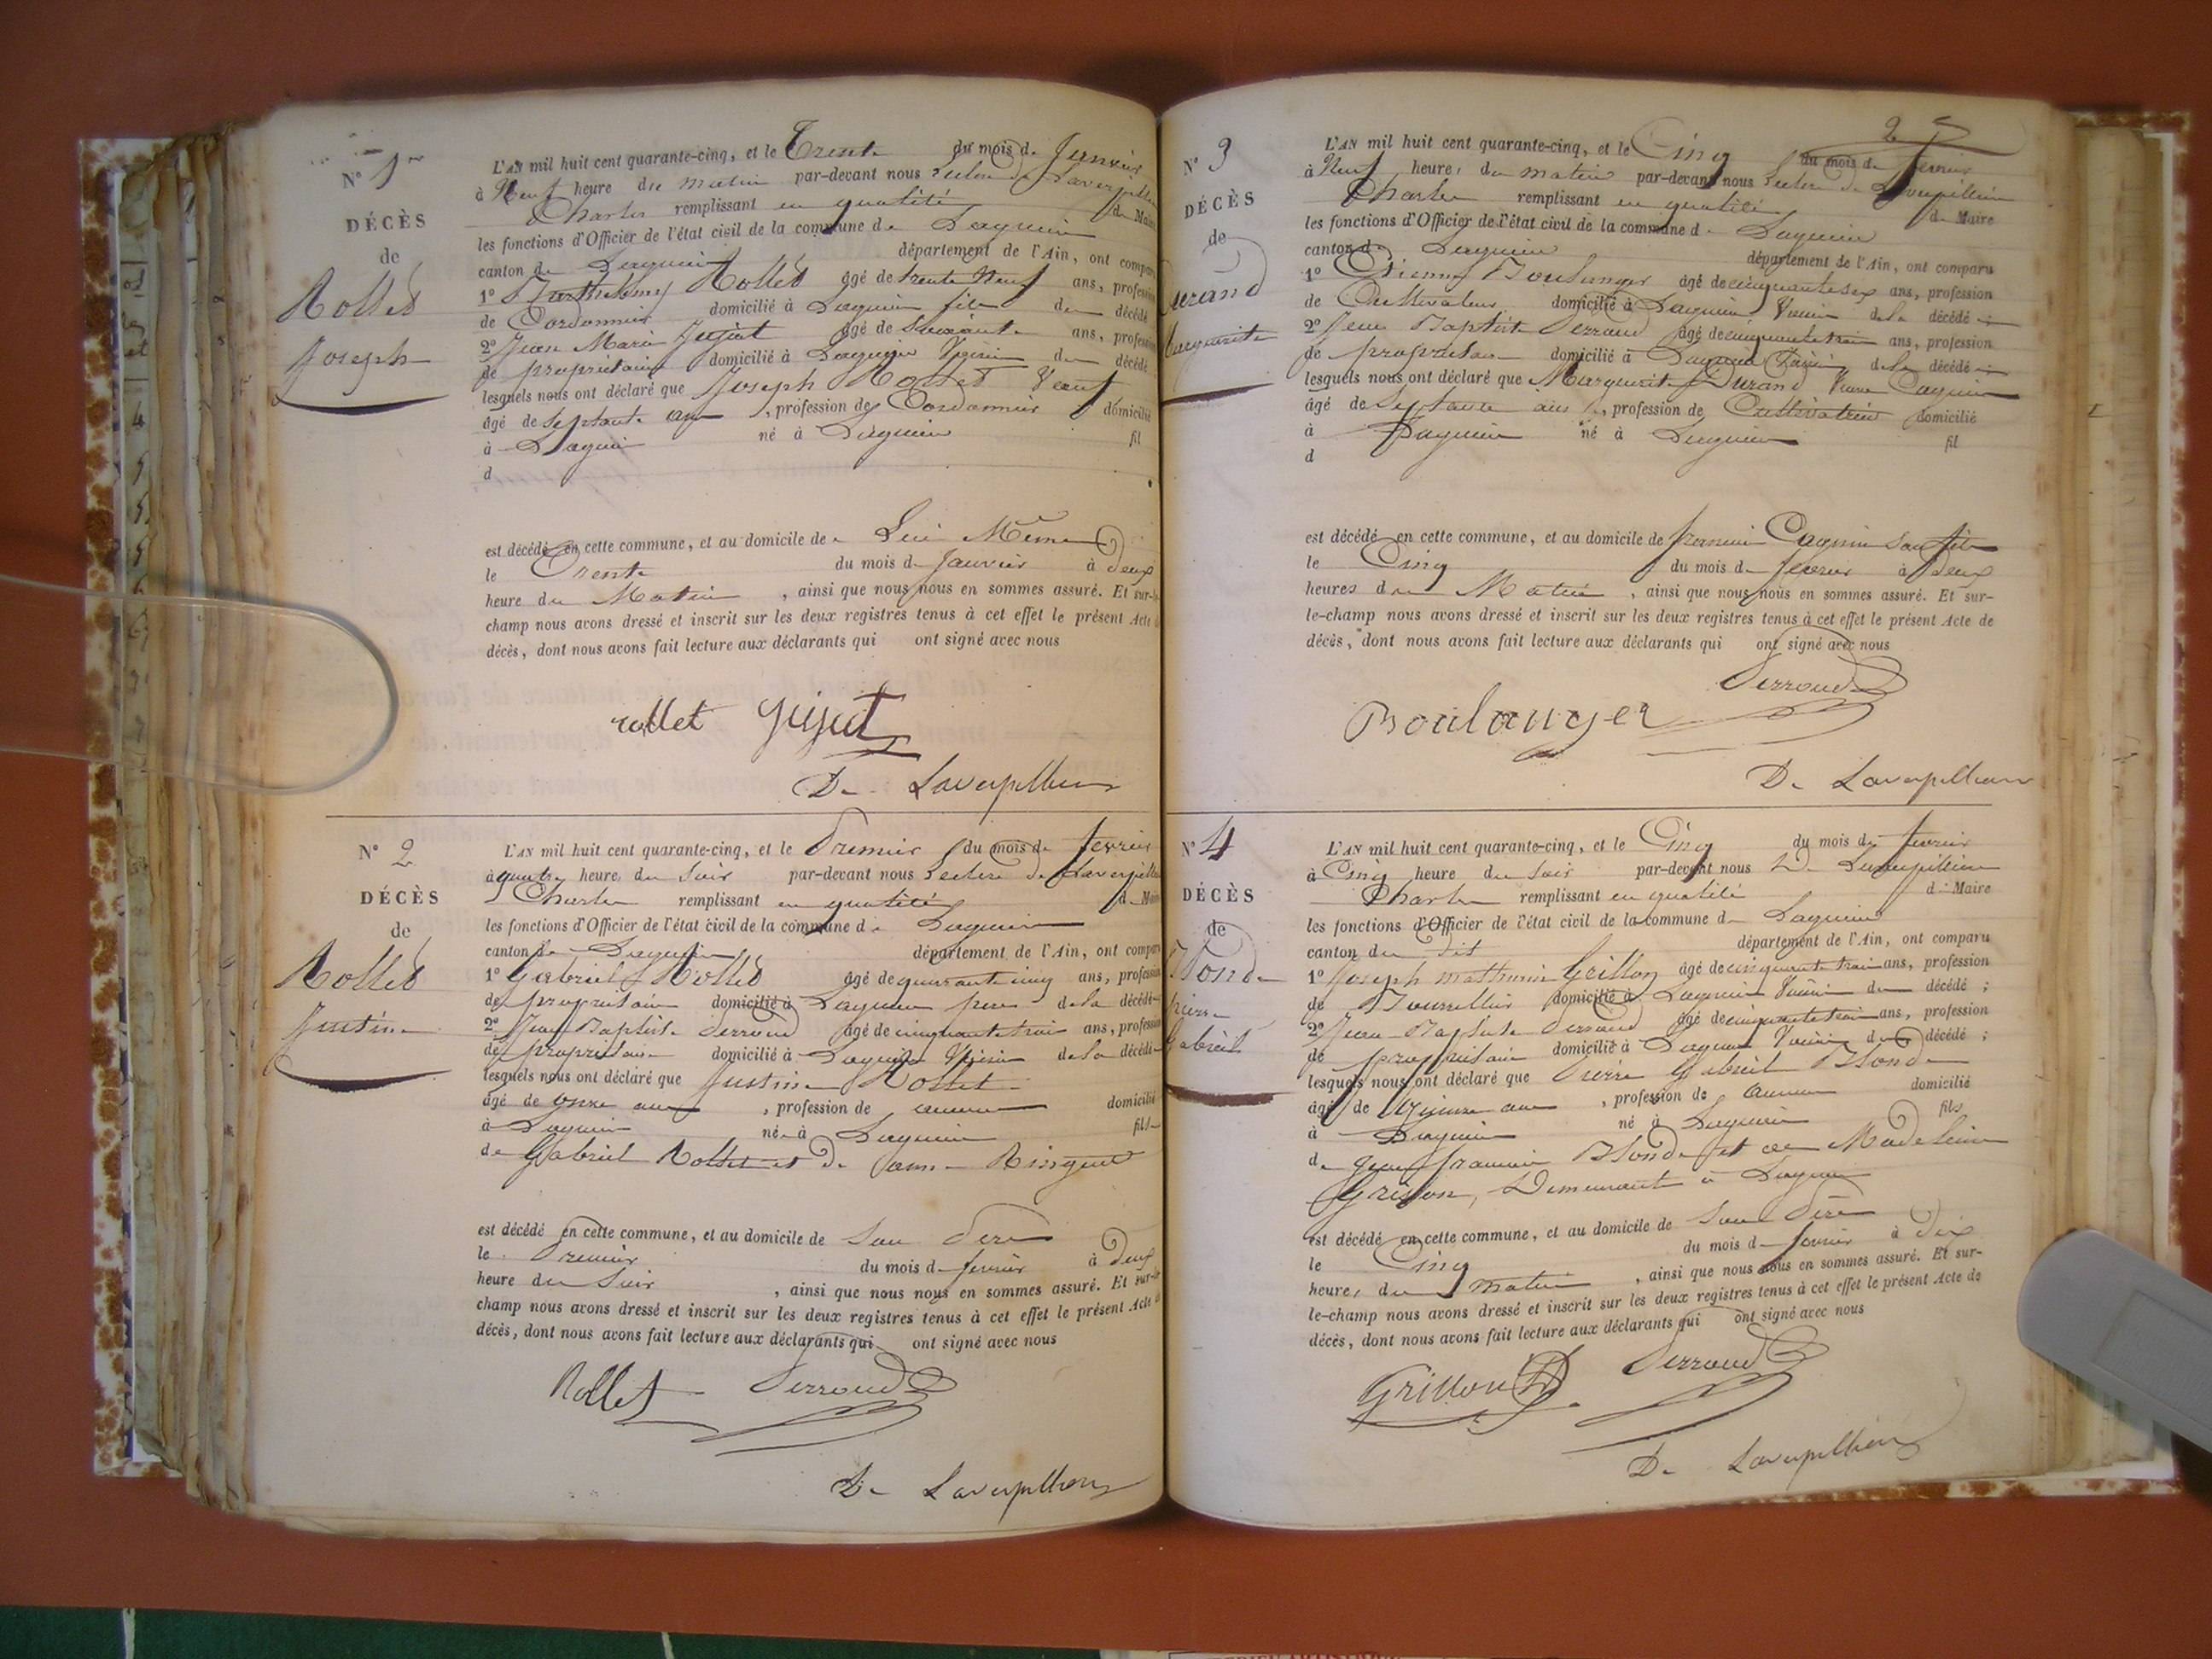 N° 1er
DÉCÈS
de
Rollet
Joseph
L'AN mil huit cent quarante-cinq, et le Trente du mois de Janvier
à Neuf heure du matin par-devant nous de Laverpillier
Charles remplissant en qualité de Maire
les fonctions d'Officier de l'état civil de la commune de Lagnieu
canton de Lagnieu département de l'Ain, ont comparu
1° Barthelemy Rollet âgé de trente Neuf ans, profession
de Cordonnier domicilié à Lagnieu fils du décédé
2° Jean Marie Jujat âgé de Soixante ans, profession
de propriétaire domicilié à Lagnieu Voisin du décédé
lesquels nous ont déclaré que Joseph Rollet Veuf
âgé de Septante ans, profession de Cordonnier domicilié
à Lagnieu né à Lagnieu fil
d
est décédé en cette commune, et au domicile de Lui Même
le Trente du mois de Janvier à deux
heure du Matin, ainsi que nous nous en sommes assuré. Et sur-le-
champ nous avons dressé et inscrit sur les deux registres tenus à cet effet le présent Acte de
décès, dont nous avons fait lecture aux déclarants qui ont signé avec nous
rollet Jujat
De Laverpilliere
N° 2
DÉCÈS
de
Rollet
Justine
L'AN mil huit cent quarante-cinq, et le Premier du mois de fevrier
à quatre heure du Soir par-devant nous de Laverpillier
Charles remplissant en qualité de Maire
les fonctions d'Officier de l'état civil de la commune de Lagnieu
canton de Lagnieu département de l'Ain, ont comparu
1° Gabriel Rollet âgé de quarante cinq ans, profession
de propriétaire domicilié à Lagnieu pere de la décédée
2° Jean Baptiste Perroud âgé de cinquante trois ans, profession
de propriétaire domicilié à Lagnieu Voisin de la décédée
lesquels nous ont déclaré que Justine Rollet
âgé de onze ans, profession de aucune domicilié
à Lagnieu né à Lagnieu fille
de Gabriel Rollet et de anne Ringuet
est décédé en cette commune, et au domicile de Son Père
le Premier du mois de fevrier à Deux
heure du Soir, ainsi que nous nous en sommes assuré. Et sur-le-
champ nous avons dressé et inscrit sur les deux registres tenus à cet effet le présent Acte de
décès, dont nous avons fait lecture aux déclarants qui ont signé avec nous
Rollet Perroud
De Laverpilliere
2
N° 3
DÉCÈS
de
Durand
Marguerite
L'AN mil huit cent quarante-cinq, et le Cinq du mois de fevrier
à Neuf heure, du matin par-devant nous de Laverpilliere
Charles remplissant en qualité de Maire
les fonctions d'Officier de l'état civil de la commune de Lagnieu
canton de Lagnieu département de l'Ain, ont comparu
1° Etienne Boulanger âgé de cinquante six ans, profession
de Cultivateur domicilié à Lagnieu Voisin de la décédé
2° Jean Baptiste Perroud âgé de cinquante trois ans, profession
de propriétaire domicilié à Lagnieu Voisin de la décédé
lesquels nous ont déclaré que Marguerite Durand Veuve Cagnin
âgé de Septante ans, profession de Cultivatrice domicilié
à Lagnieu né à Lagnieu fil
d
est décédé en cette commune, et au domicile de francois Cagnin Son fils
le Cinq du mois de fevrier à Deux
heures du Matin, ainsi que nous nous en sommes assuré. Et sur-
le-champ nous avons dressé et inscrit sur les deux registres tenus à cet effet le présent Acte de
décès, dont nous avons fait lecture aux déclarants qui ont signé avec nous
Perroud
Boulanger
De Laverpilliere
N° 4
DÉCÈS
de
Blonde
pierre
Gabriel
L'AN mil huit cent quarante-cinq, et le Cinq du mois de fevrier
à Cinq heure du Soir par-devant nous De Laverpilliere
Charles remplissant en qualité de Maire
les fonctions d'Officier de l'état civil de la commune de Lagnieu
canton du dit département de l'Ain, ont comparu
1° Joseph mathurin Grillon âgé de cinquante trois ans, profession
de Bourrellier domicilié à Lagnieu Voisin du décédé ;
2° Jean Baptiste Perroud âgé de cinquante trois ans, profession
de propriétaire domicilié à Lagnieu Voisin du décédé ;
lesquels nous ont déclaré que Pierre Gabriel Blonde
âgé de quinze ans, profession de Aucune domicilié
à Lagnieu né à Lagnieu fils
de Jean francois Blonde et de Madeleine
Grillon, Demeurant à Lagnieu
est décédé en cette commune, et au domicile de Son Père
le Cinq du mois de fevrier à Dix
heure, du matin, ainsi que nous nous en sommes assuré. Et sur-
le-champ nous avons dressé et inscrit sur les deux registres tenus à cet effet le présent Acte de
décès, dont nous avons fait lecture aux déclarants qui ont signé avec nous
Grillon Perroud
De Laverpilliere